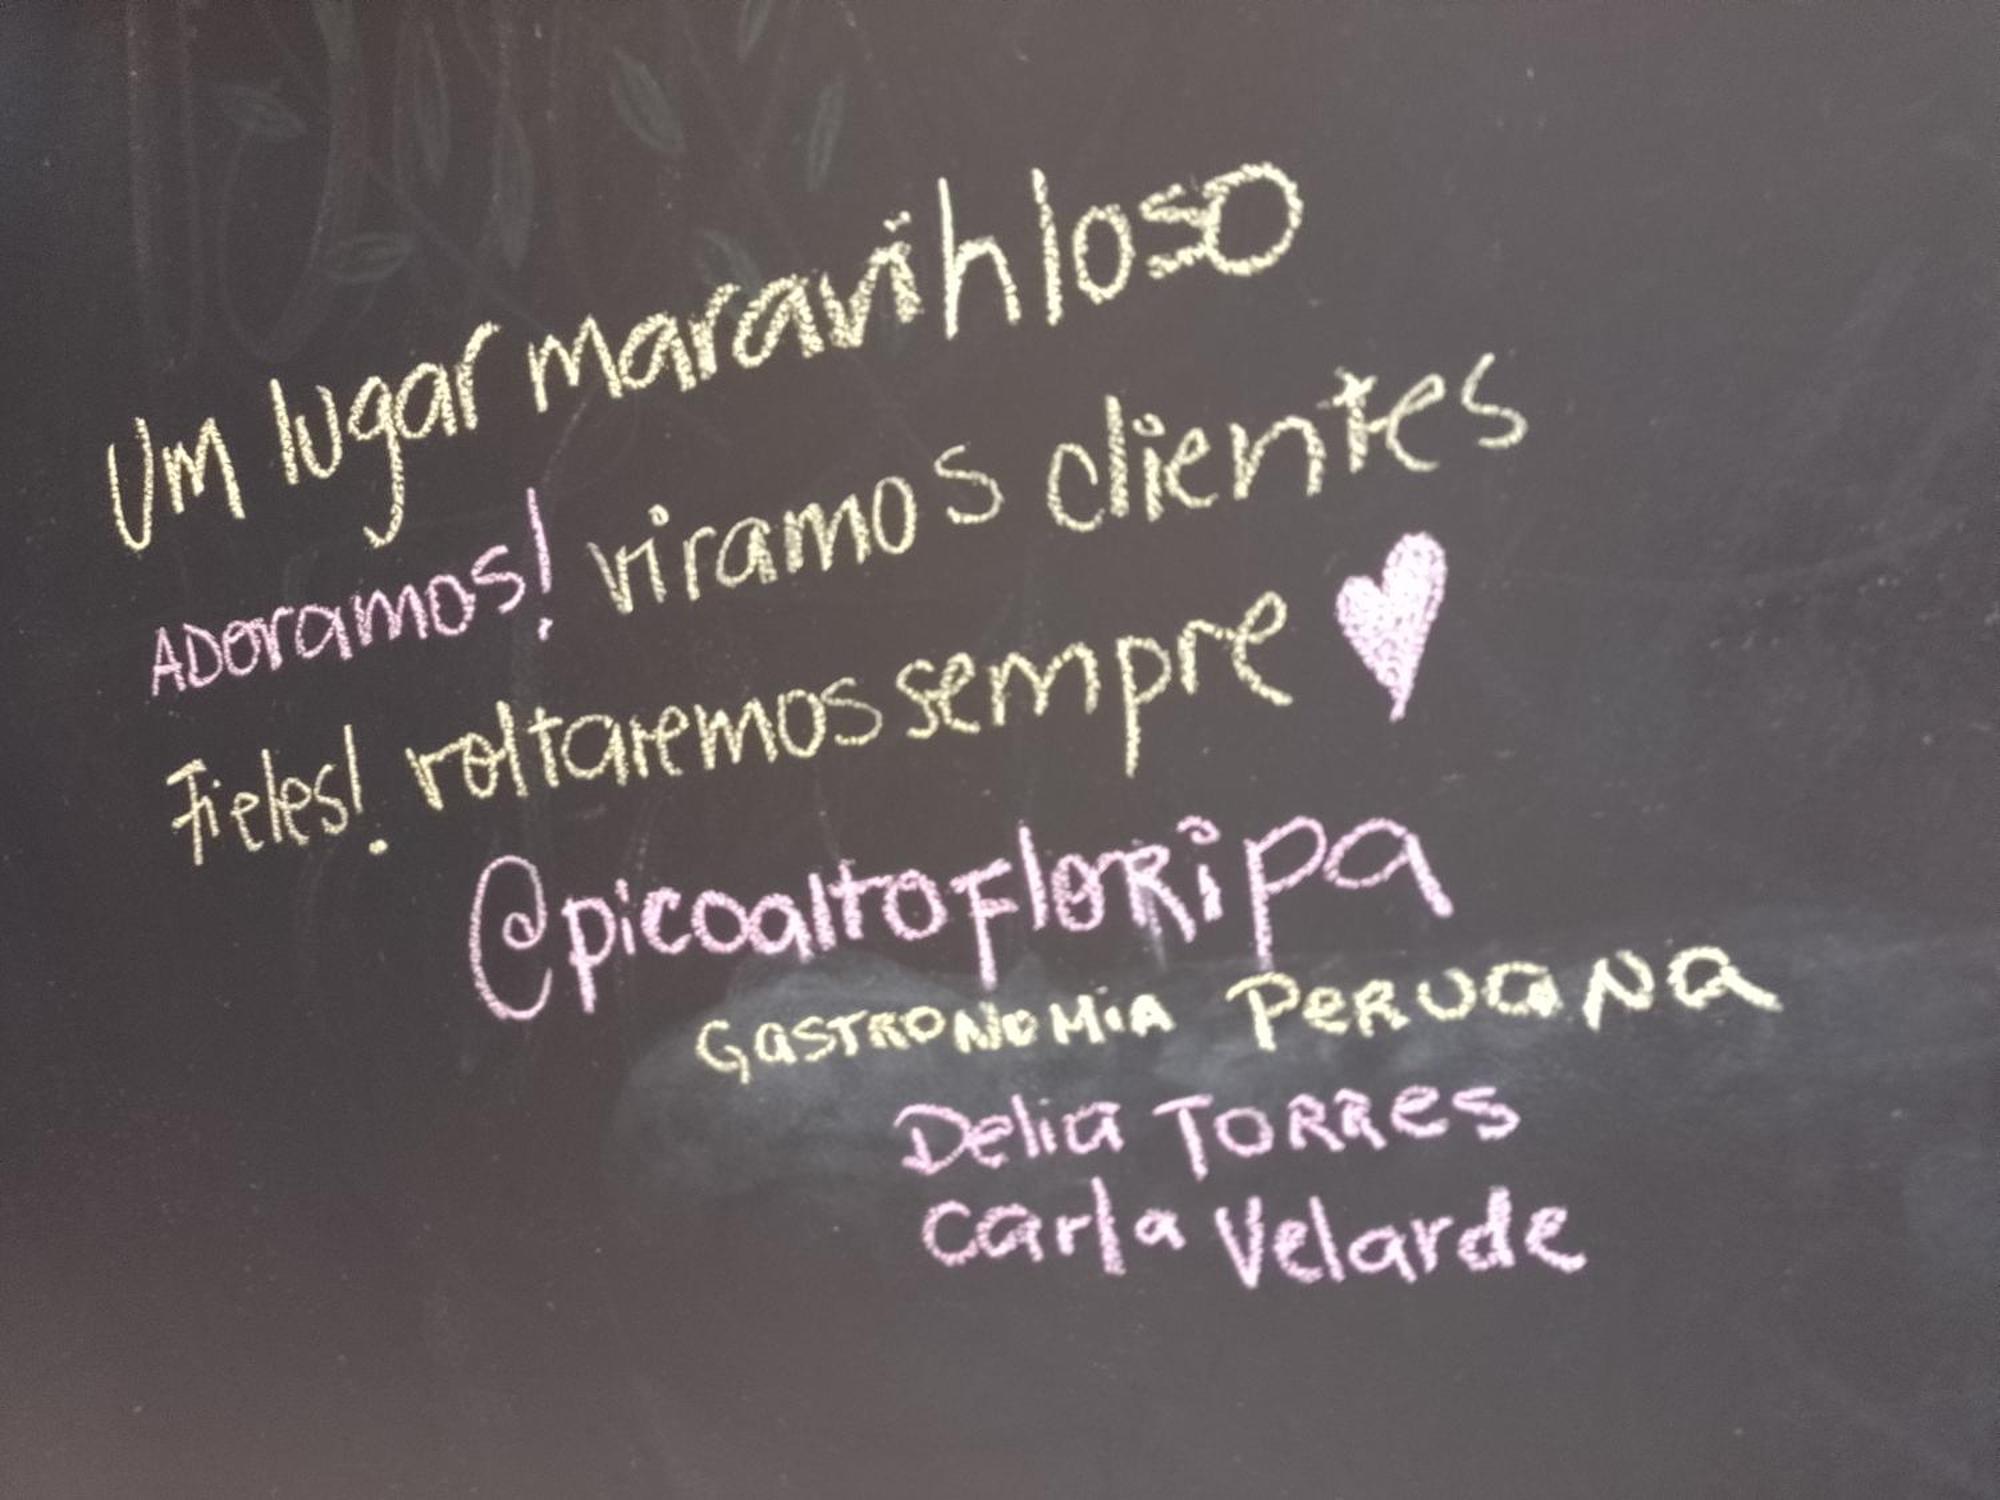 Um lugar maravihloso
ADoramos! viramos clientes
Fieles! voltaremos sempre
@picoaltoFloRipa
GaSTRONOMiA PeRUaNa
Delia TORRes
Carla Velarde